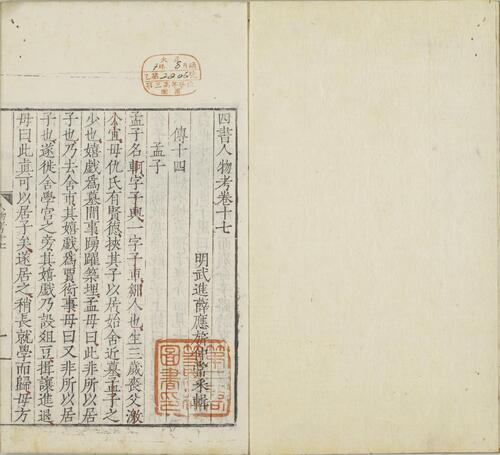 四書人物考卷十七
明武進薛應旂仲常采輯
傳十四
孟子
孟子名軻字子輿一字子車鄒人也生三歲喪父激
公宜母仉氏有賢德挾其子以居始舍近墓孟子之
少也嬉戲為墓間事踴躍築埋孟母曰此非所以居
子也乃去舍市其嬉戲為賈衒事母曰又非所以居
子也遂徙舍學宮之旁其嬉戲乃設俎豆揖讓進退
母曰此真可以居子矣遂居之稍長就學而歸母方